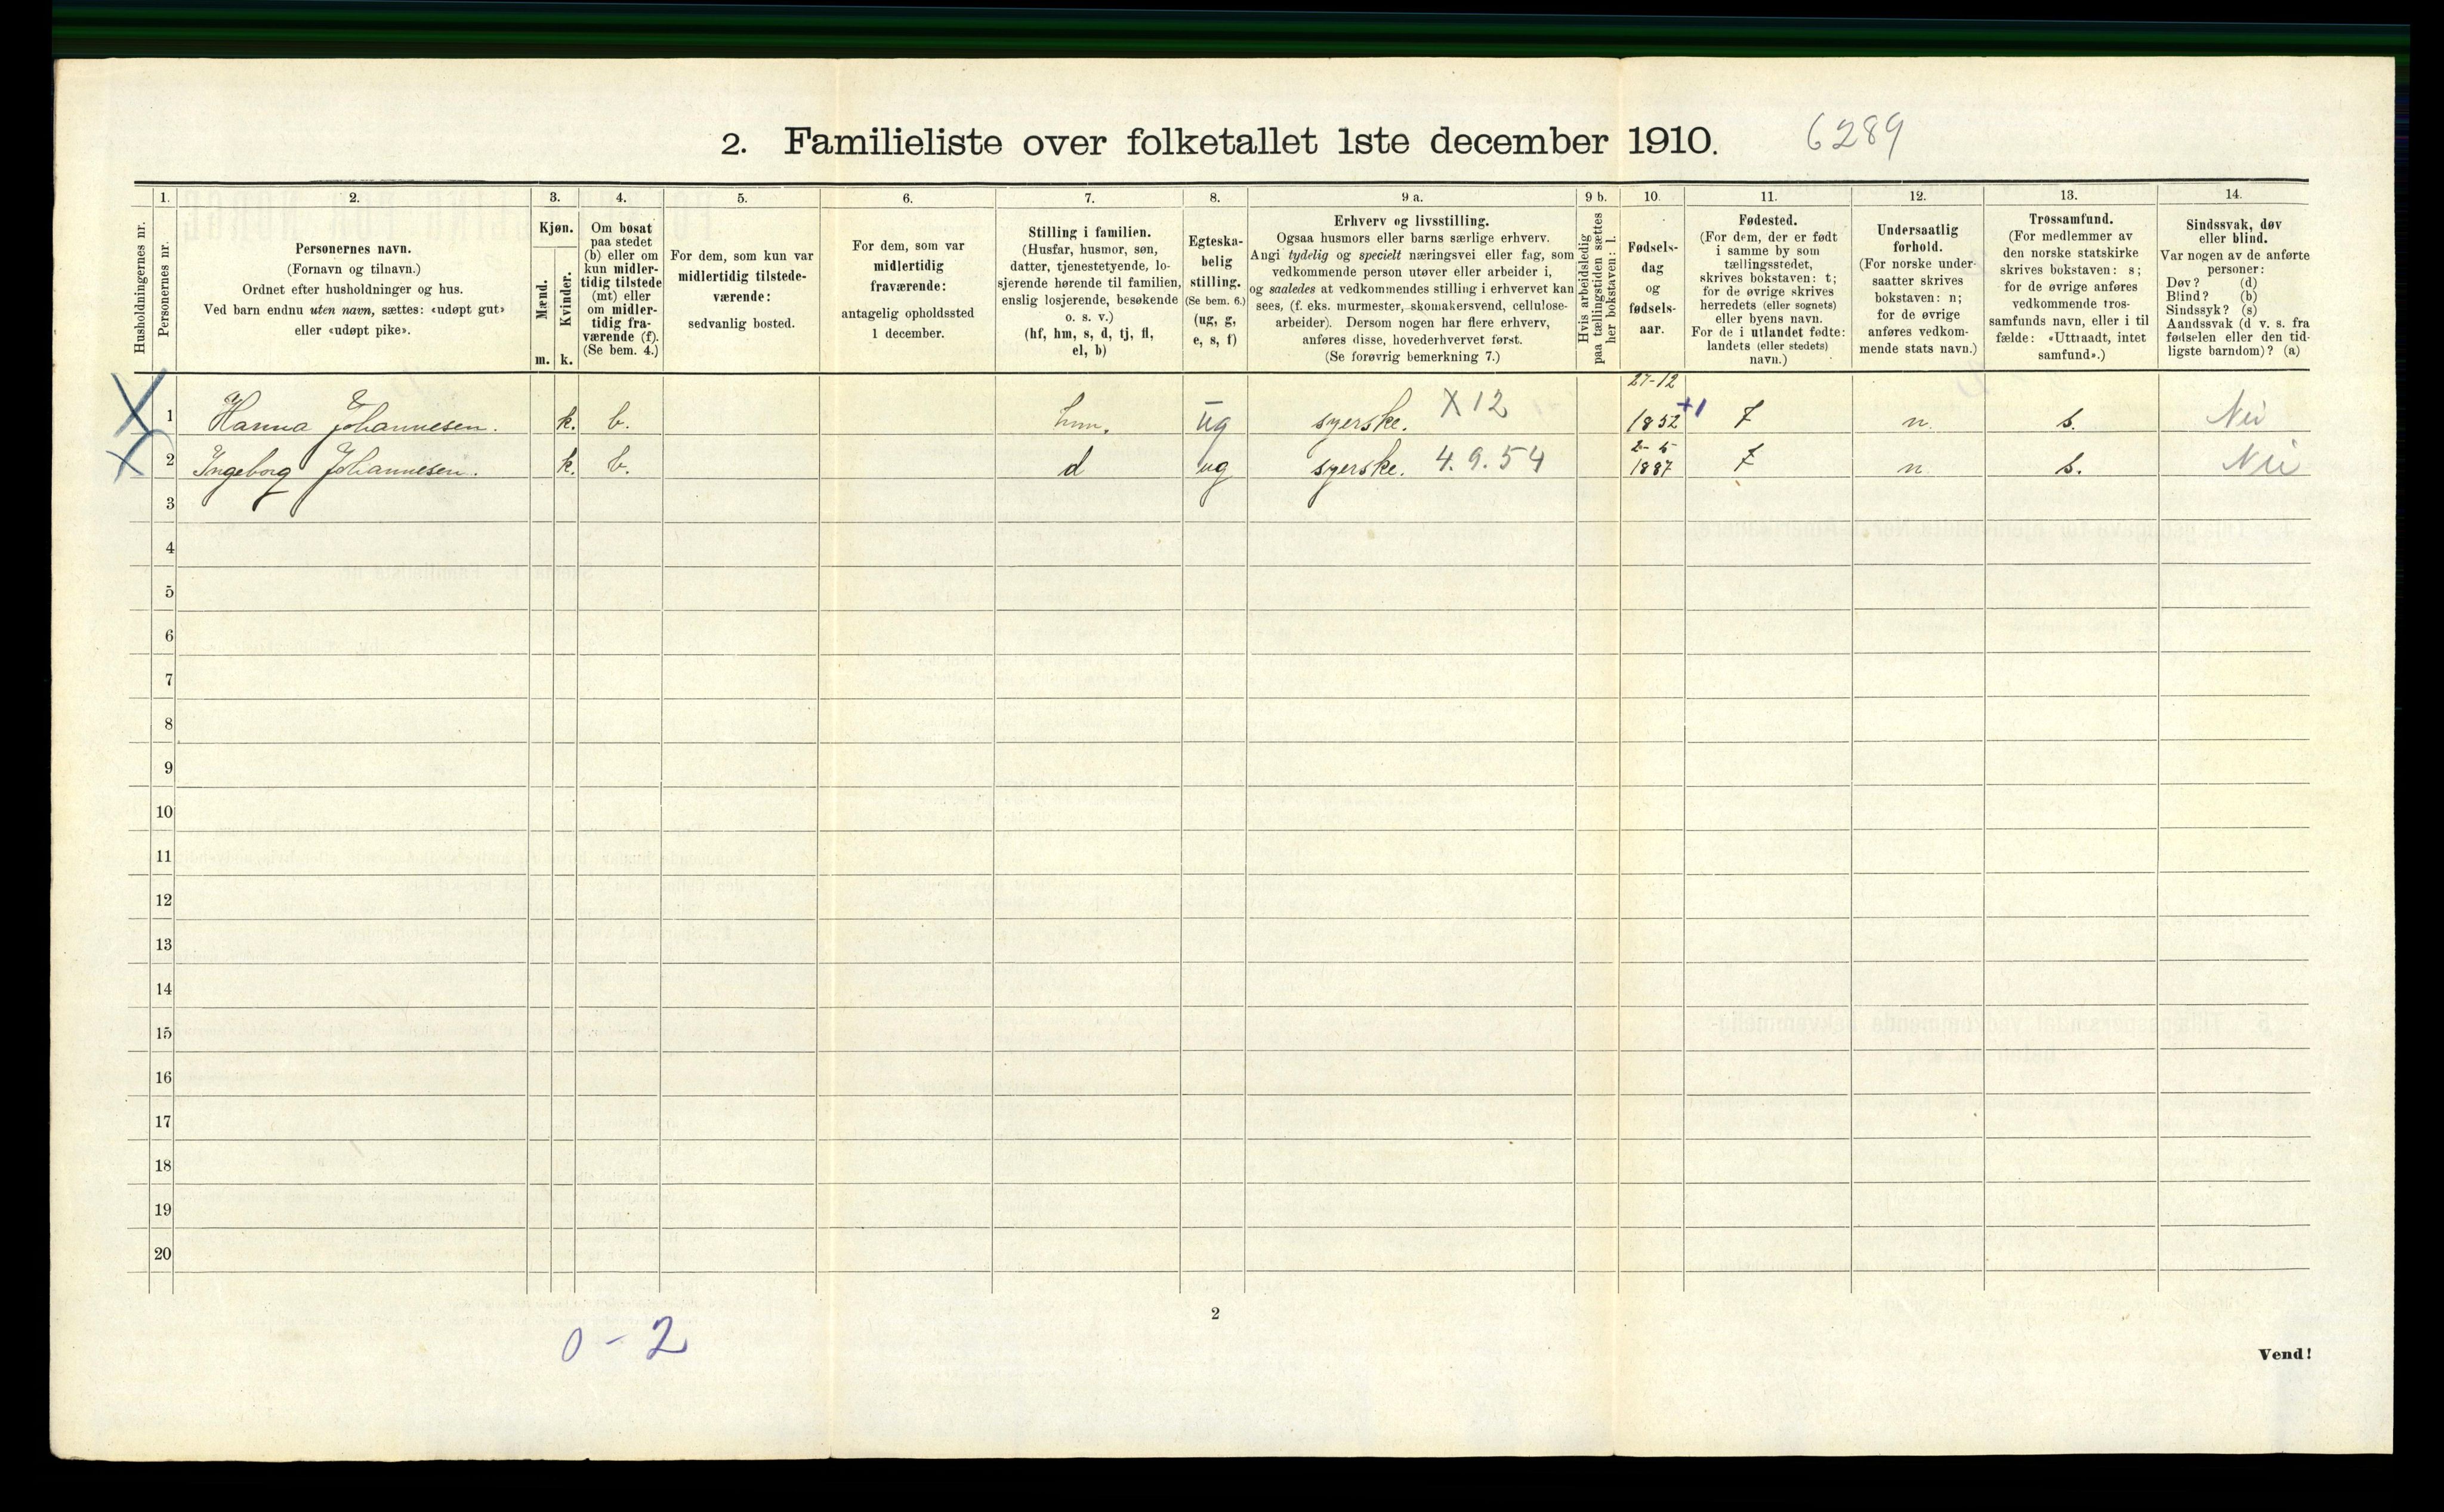 2. Familieliste over folketallet 1ste december 1910. 6289
Husholdningernes nr.
1.
Personernes nr.
2.
Personernes navn.
(Fornavn og tilnavn.)
Ordnet efter husholdninger og hus.
Ved barn endnu uten navn, sættes: «udøpt gut»
eller «udøpt pike».
3.
Kjøn.
Mænd.
m.
Kvinder.
k.
4.
Om bosat
paa stedet
(b) eller om
kun midler-
tidig tilstede
(mt) eller
om midler-
tidig fra-
værende (f).
(Se bem. 4.)
5.
For dem, som kun var
midlertidig tilstede-
værende:
sedvanlig bosted.
6.
For dem, som var
midlertidig
fraværende:
antagelig opholdssted
1 december.
7.
Stilling i familien.
(Husfar, husmor, søn,
datter, tjenestetyende, lo-
sjerende hørende til familien,
enslig losjerende, besøkende
o. s. v.)
(hf, hm, s, d, tj, fl,
el, b)
8.
Egteska-
belig
stilling.
(Se bem. 6.)
(ug, g,
e, s, f)
9 a.
Erhverv og livsstilling.
Ogsaa husmors eller barns særlige erhverv.
Angi tydelig og specielt næringsvei eller fag, som
vedkommende person utøver eller arbeider i,
og saaledes at vedkommendes stilling i erhvervet kan
sees, (f. eks. murmester, skomakersvend, cellulose-
arbeider). Dersom nogen har flere erhverv,
anføres disse, hovederhvervet først.
(Se forøvrig bemerkning 7.)
9 b.
Hvis arbeidsledig
paa tællingstiden sættes
her bokstaven: l.
10.
Fødsels-
dag
og
fødsels-
aar.
11.
Fødested.
(For dem, der er født
i samme by som
tællingsstedet,
skrives bokstaven: t;
for de øvrige skrives
herredets (eller sognets)
eller byens navn.
For de i utlandet fødte:
landets (eller stedets)
navn.)
12.
Undersaatlig
forhold.
(For norske under-
saatter skrives
bokstaven: n;
for de øvrige
anføres vedkom-
mende stats navn.)
13.
Trossamfund.
(For medlemmer av
den norske statskirke
skrives bokstaven: s;
for de øvrige anføres
vedkommende tros-
samfunds navn, eller i til-
fælde: «Uttraadt, intet
samfund».)
14.
Sindssvak, døv
eller blind.
Var nogen av de anførte
personer:
Døv? (d)
Blind? (b)
Sindssyk? (s)
Aandssvak (d. v. s. fra
fødselen eller den tid-
ligste barndom)? (a)
27-12
1 Hanna Johannesen. k. b. hm. ug syerske. X 12 1852 +1 t n. s. Nei
2-5
2 Ingeborg Johannesen. k. b. d ug syerske. 4.9.54 1887 t n. s. Nei
3
4
5
6
7
8
9
10
11
12
13
14
15
16
17
18
19
20
2
0 - 2
Vend!